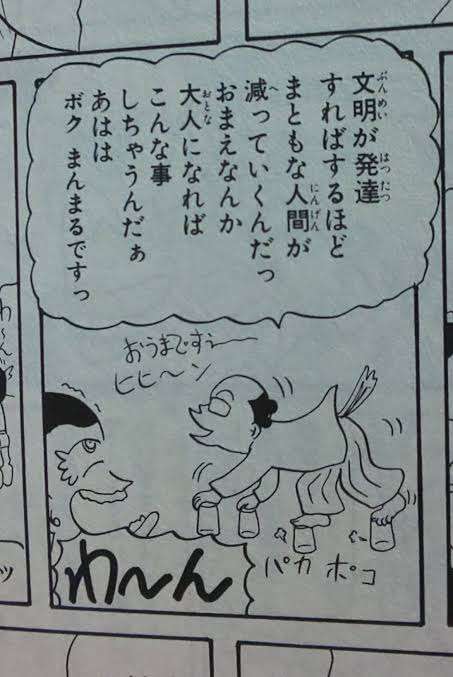 文明が発達
すればするほど
まともな人間が
減っていくんだっ
おまえなんか
大人になれば
こんな事
しちゃうんだぁ
あはは
ボク まんまるですっ
おうまですぅー
ヒヒ〜ン
わ〜ん
パカ ポコ
わ〜ん
ッ